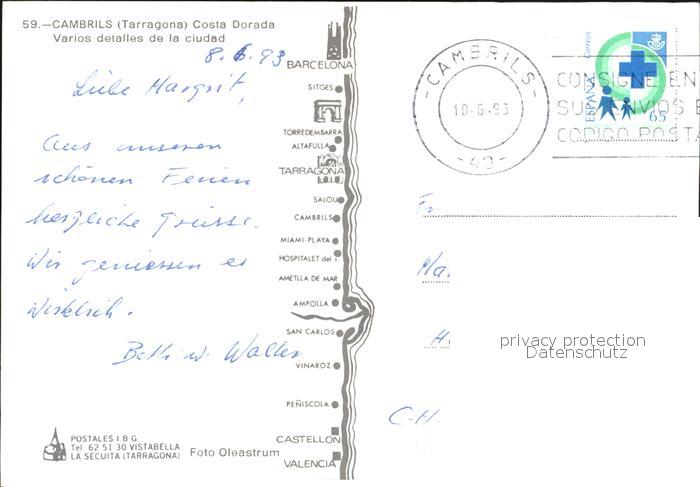 59.—CAMBRILS (Tarragona) Costa Dorada
Varios detalles de la ciudad
8.6.93
Liebe Margrit,
Aus unseren
schönen Ferien
herzliche Grüsse.
Wir geniessen es
wirklich.
Betti u. Walter
POSTALES I B G
Tel 62 51 30 VISTABELLA
LA SECUITA (TARRAGONA)
Foto Oleastrum
BARCELONA
SITGES
TORREDEMBARRA
ALTAFULLA
TARRAGONA
SALOU
CAMBRILS
MIAMI-PLAYA
HOSPITALET del I.
AMETLLA DE MAR
AMPOLLA
SAN CARLOS
VINAROZ
PEÑISCOLA
CASTELLON
VALENCIA
-CAMBRILS-
10-6-93
-43-
CONSIGNE EN
SUS ENVIOS E
CODIGO POSTA
Correos
ESPAÑA
65
Fr.
Ma.
H.
CH.
privacy protection
Datenschutz